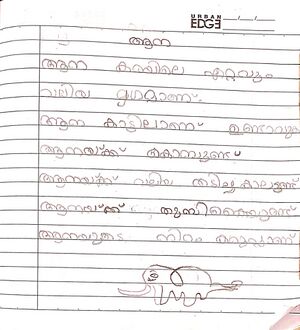 URBAN
EDGE
ആന
ആന കരയിലെ ഏറ്റവും
വലിയ മൃഗമാണ്.
ആന കാട്ടിലാണ് ഉണ്ടാവുക
ആനയ്ക്ക് കൊമ്പുണ്ട്
ആനയ്ക്ക് വലിയ തടിച്ച കാലുണ്ട്
ആനയ്ക്ക് തുമ്പിക്കൈയുണ്ട്
ആനയുടെ നിറം കറുപ്പാണ്